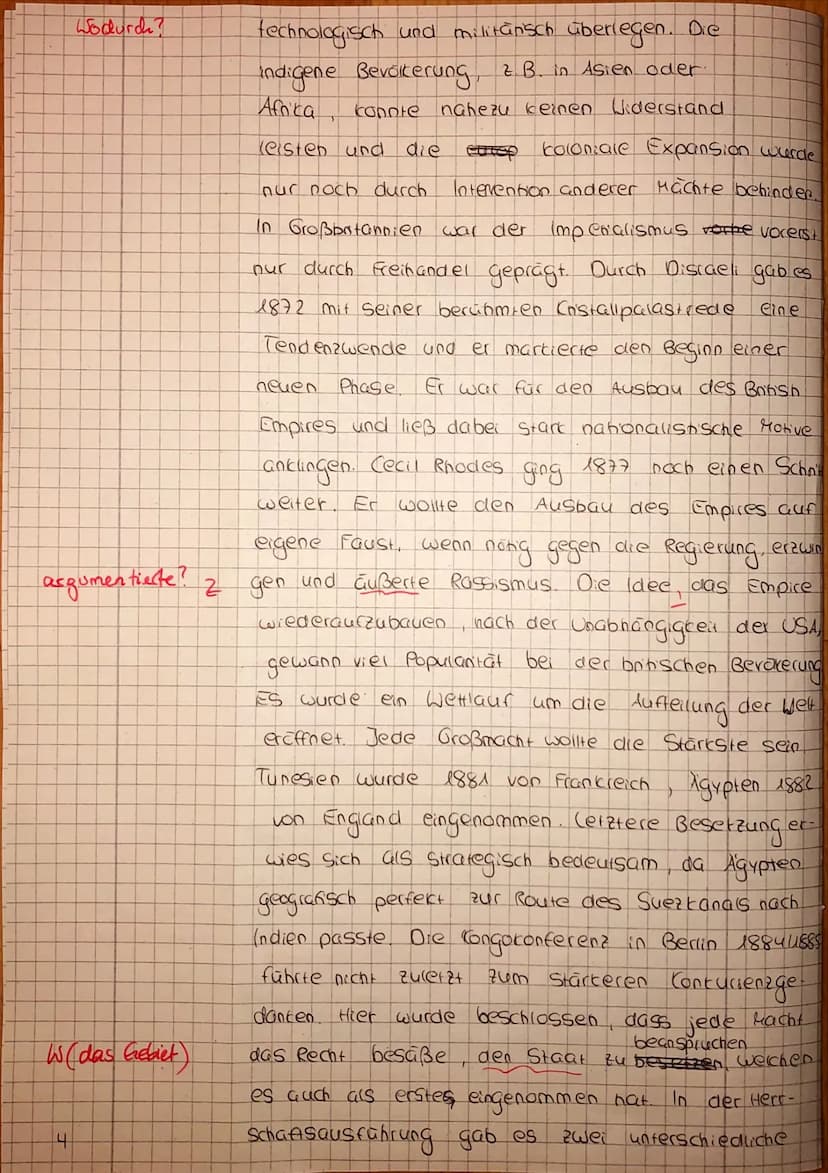 Wodurch?
technologisch und militärisch überlegen. Die
indigene Bevölkerung, z.B. in Asien oder
Afrika, konnte nahezu keinen Widerstand
leisten und die koloniale Expansion wurde
nur noch durch Intervention anderer Mächte behindert.
In Großbritannien war der Imperialismus vorerst
nur durch Freihandel geprägt. Durch Disraeli gab es
1872 mit seiner berühmten Cristallpalastrede eine
Tendenzwende und er markierte den Beginn einer
neuen Phase. Er war für den Ausbau des British
Empires und ließ dabei stark nationalistische Motive
anklingen. Cecil Rhodes ging 1877 noch einen Schritt
weiter. Er wollte den Ausbau des Empires auf
eigene Faust, wenn nötig gegen die Regierung, erzwin
argumentierte? Z
gen und äußerte Rassismus. Die Idee, das Empire
wiederaufzubauen, nach der Unabhängigkeit der USA,
gewann viel Popularität bei der britischen Bevölkerung
Es wurde ein Wettlauf um die Aufteilung der Welt
eröffnet. Jede Großmacht wollte die Stärkste sein
Tunesien wurde 1881 von Frankreich, Ägypten 1882
von England eingenommen. Letztere Besetzung er-
wies sich als strategisch bedeutsam, da Ägypten
geografisch perfekt zur Route des Suezkanals nach
Indien passte. Die Kongokonferenz in Berlin 1884/1885
führte nicht zuletzt zum stärkeren Konkurrenzge-
danken. Hier wurde beschlossen, dass jede Macht
W (das Gebiet)
das Recht besäße, den Staat zu beanspruchen, welchen
es auch als erstes eingenommen hat. In der Herr-
schaftsausführung gab es zwei unterschiedliche
4